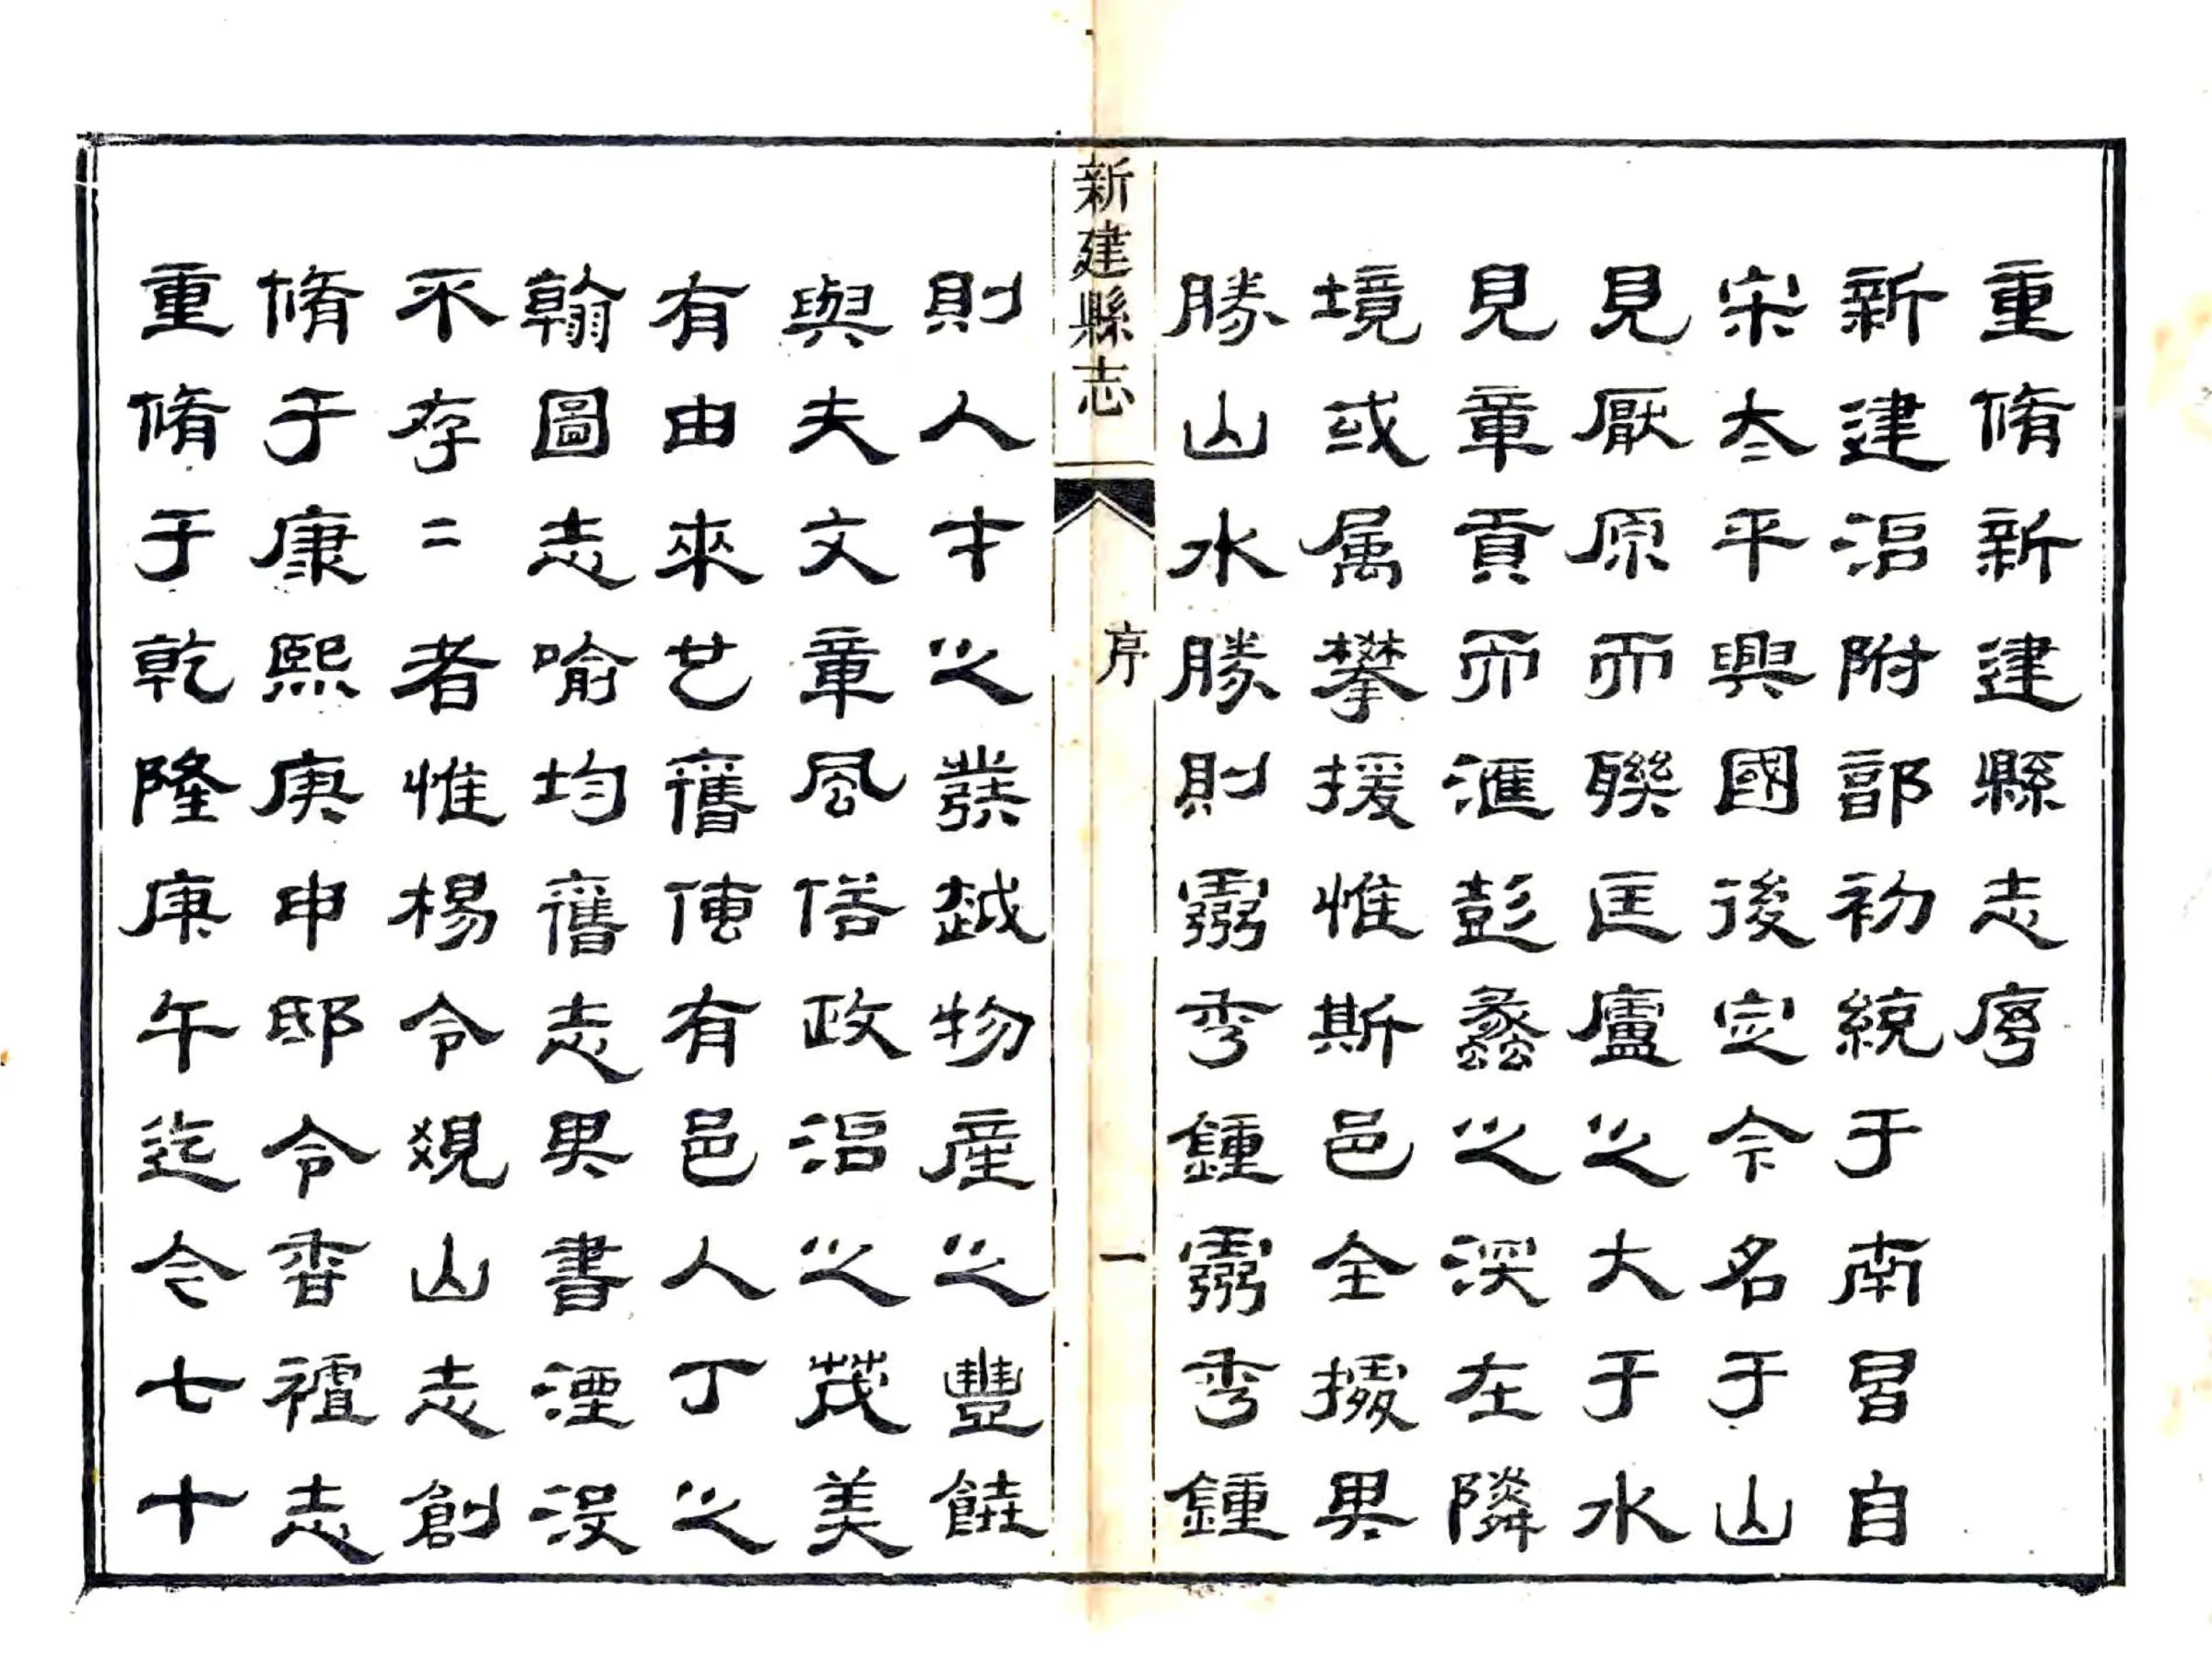 重脩新建縣志序
新建治附郭初統于南昌自
宋太平興國後定今名于山
見厭原而聯匡廬之大于水
見章貢而滙彭蠡之深在隣
境或属攀援惟斯邑全據其
勝山水勝則靈秀鍾靈秀鍾
新建縣志
序
一
則人才之發越物産之豐饒
與夫文章風俗政治之茂美
有由來也舊傳有邑人丁之
翰圖志喻均舊志其書湮沒
不存〻者惟楊令覺山志創
脩于康熙庚申邸令香志
重脩于乾隆庚午迄今七十